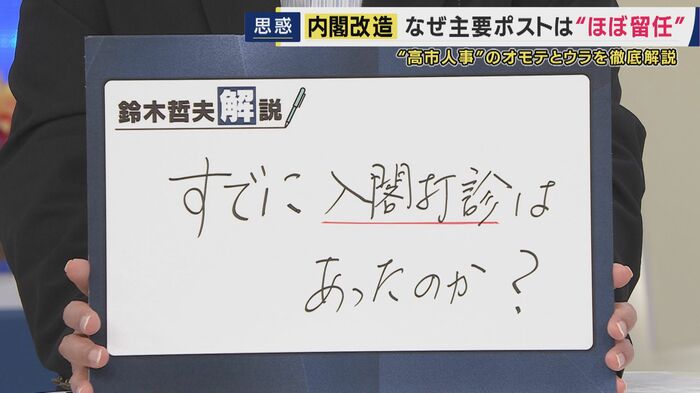 思惑 内閣改造 なぜ主要ポストは“ほぼ留任”
“高市人事”のオモテとウラを徹底解説
鈴木哲夫解説
すでに入閣打診は
あったのか？